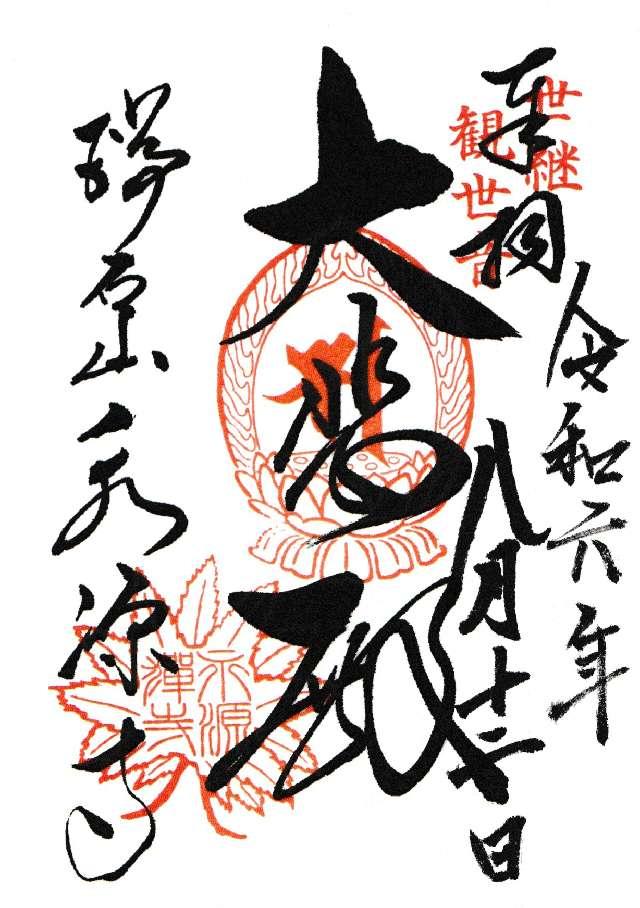 奉拝
世継
観世音
令和六年
八月十二日
大悲殿
瑞石山永源寺
永源
禪寺